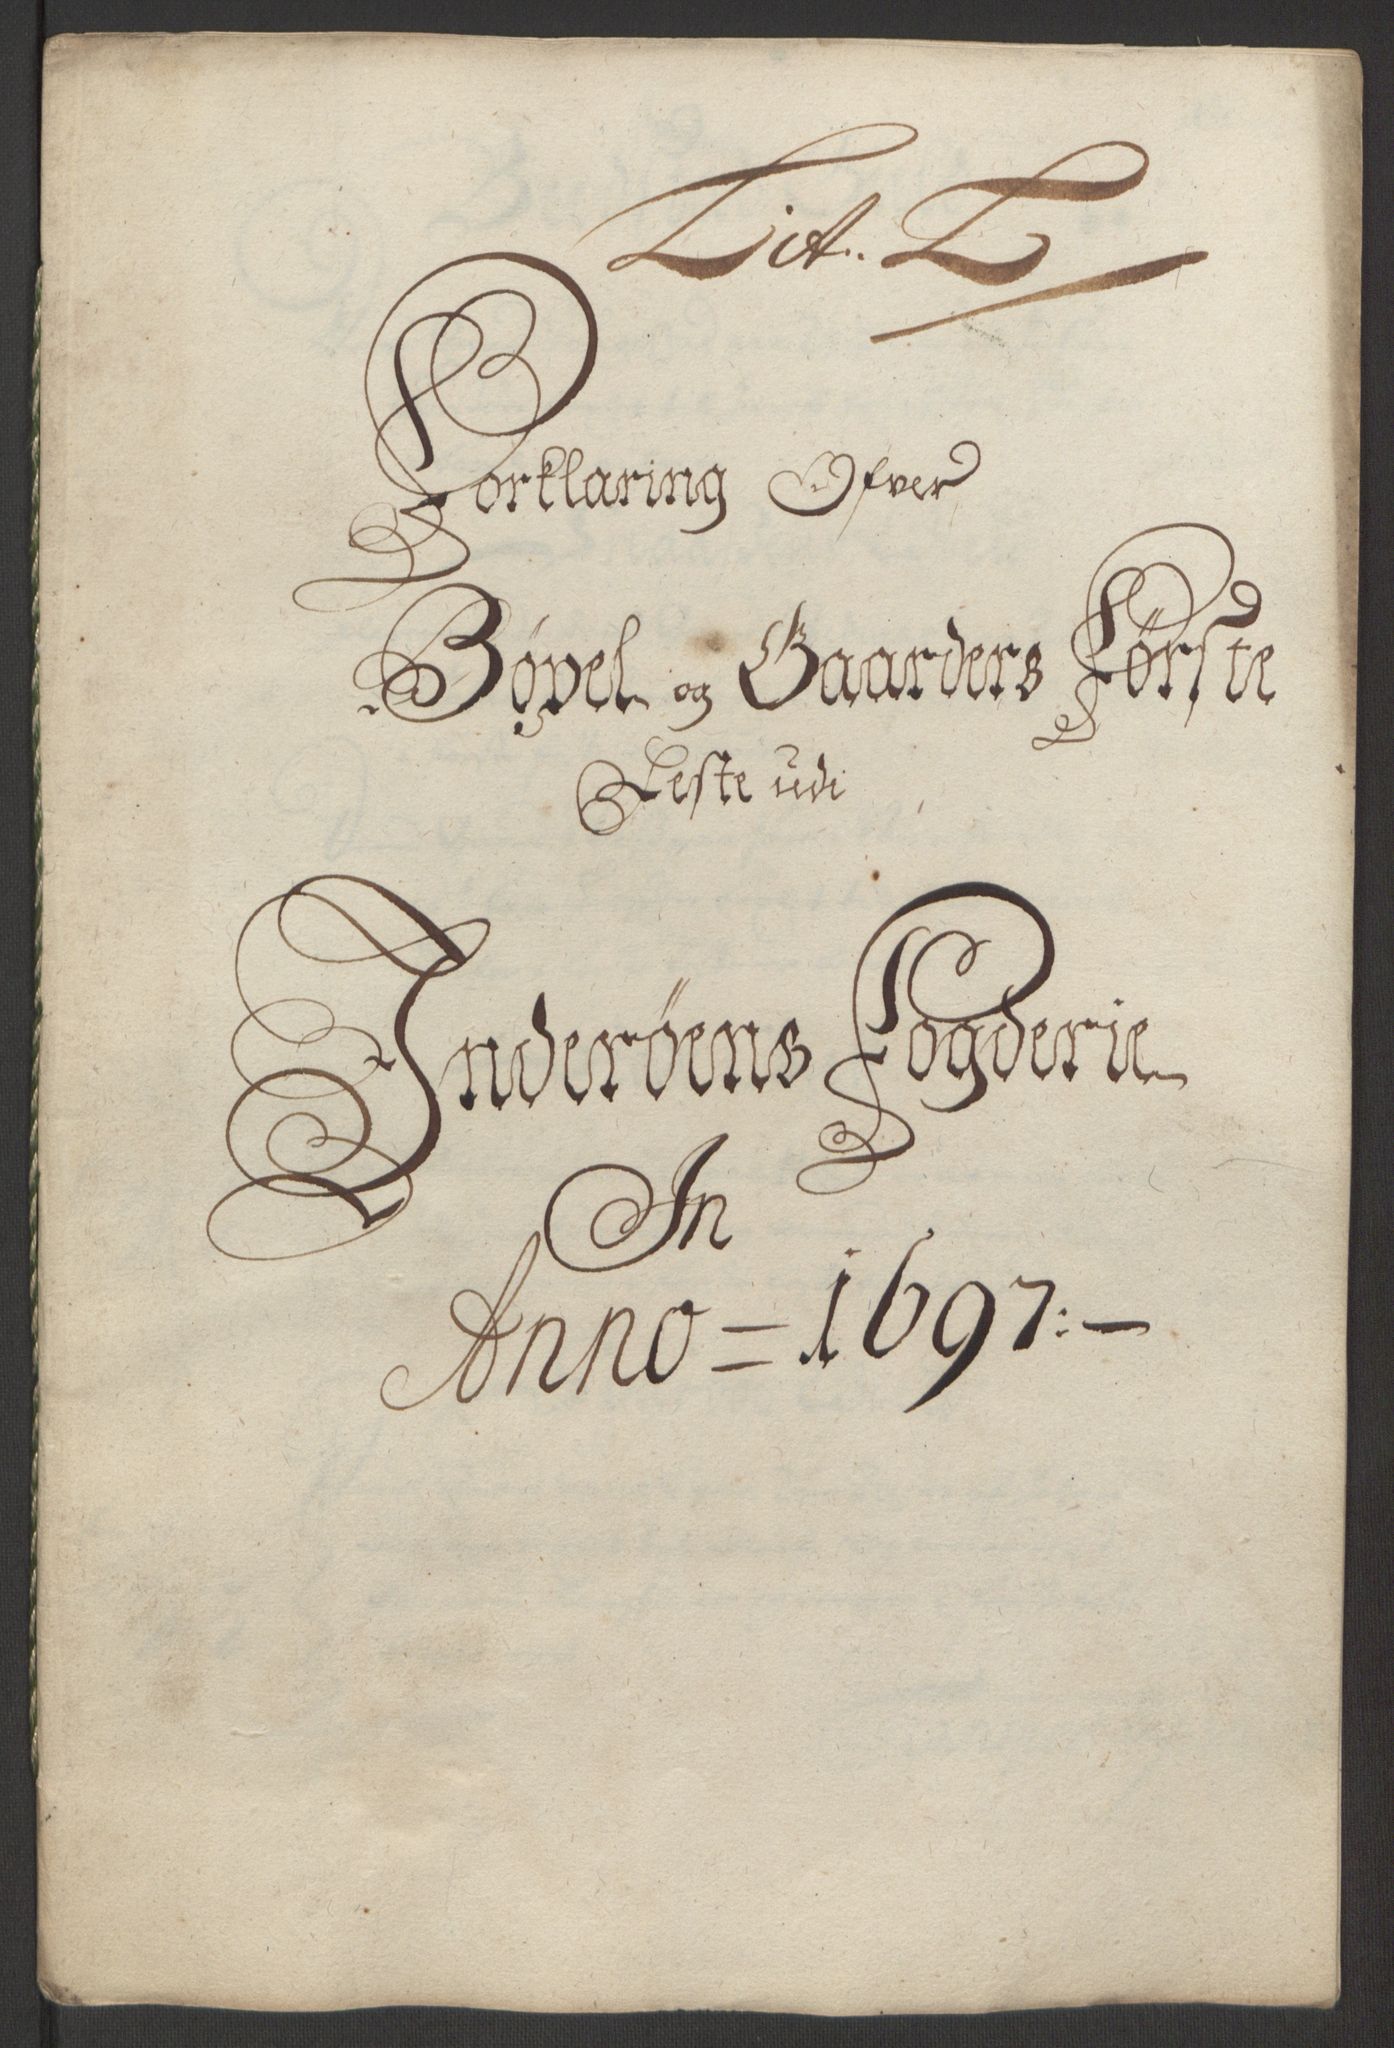 Lit. L
Forklaring Ofver
Bøxel og Gaarders Første
Leste udi
Inderöens Fogderie
In
Anno = 1697:—